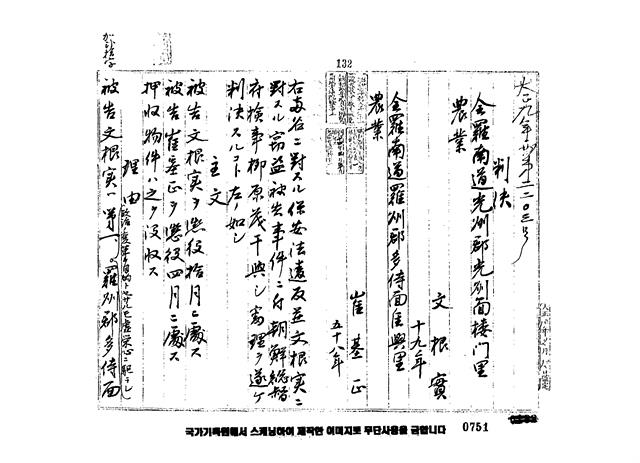 132
大正九年
判決
全羅南道光州郡光州面楼門里
農業
文根實
十九年
全羅南道羅州郡多侍面佳興里
農業
崔基正
五十八年
右両名ニ對スル保安法違反並文根実ニ
對スル窃盗被告事件ニ付朝鮮総督
府検事柳原茂干與シ審理ヲ遂ケ
判決スルコト左ノ如シ
主文
被告文根実ヲ懲役拾月ニ處ス
被告崔基正ヲ懲役四月ニ處ス
押収物件ハ之ヲ没収ス
理由
被告文根実ハ第一、羅州郡多侍面
국가기록원에서 스캐닝하여 제작한 이미지로 무단사용을 금합니다
0751